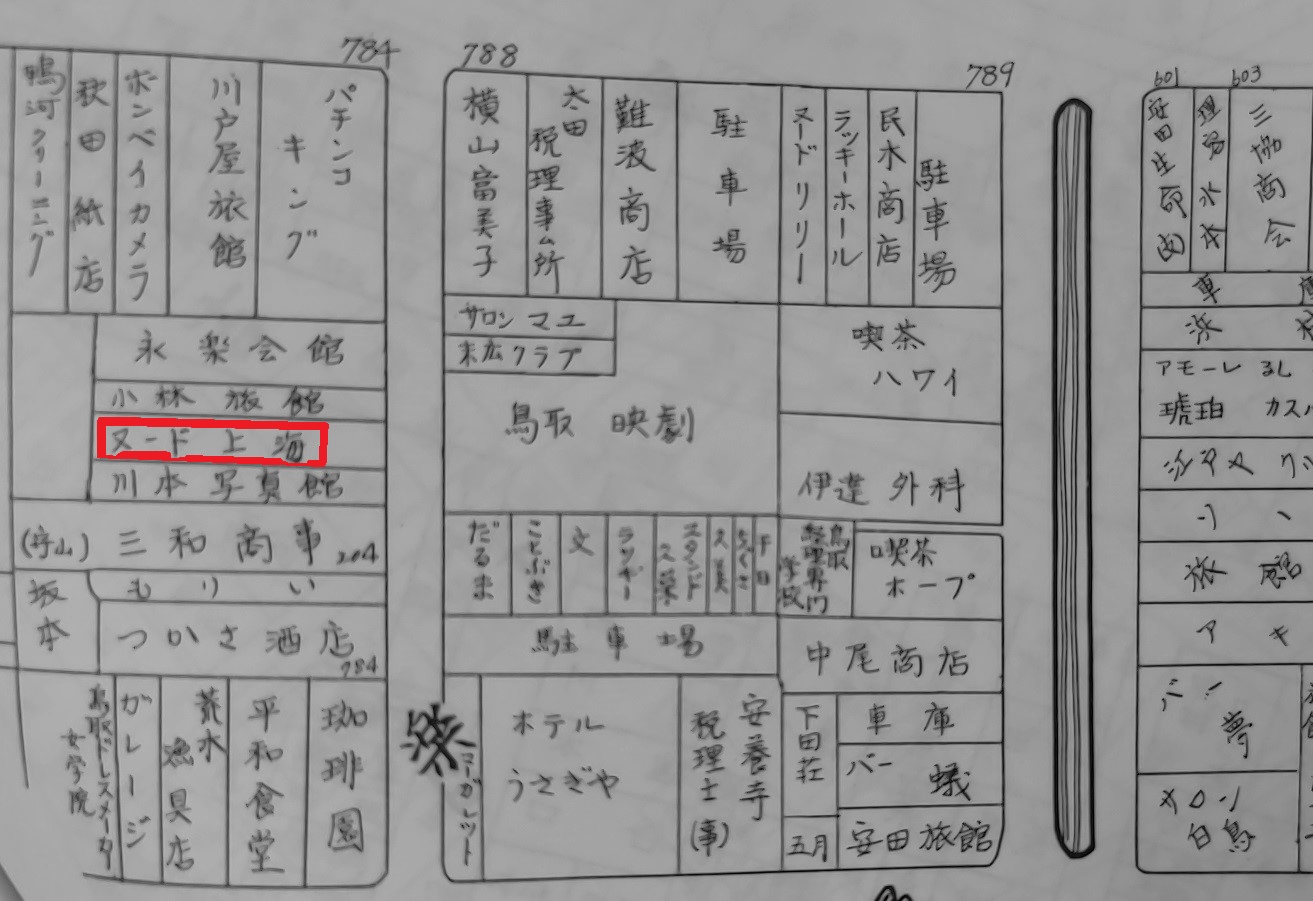 784
鴨河クリーニング
秋田紙店
ボンベイカメラ
川戸屋旅館
パチンコ
キング
永楽会館
小林旅館
ヌード上海
川本写真館
(守山) 三和商事 204
もりい
坂本
つかさ酒店
784
鳥取ドレスメーカー
女学院
ガレージ
荒木
漁具店
平和食堂
珈琲園
788
789
横山富美子
太田
税理事ム所
難波商店
駐車場
ヌードリリー
ラッキーホール
民木商店
駐車場
サロン マユ
末広クラブ
鳥取 映劇
喫茶
ハワイ
伊達 外科
だるま
ことぶき
文
スタンド
久美
千日
鳥取
経理専門
学校
喫茶
ホープ
駐車場
中尾商店
マーガレット
ホテル
うさぎや
安養寺
税理士(事)
下田荘
車庫
バー 蟻
五月
安田旅館
601
603
三協商会
アモーレ
琥珀
旅館
アキ
バー
夢
メロン
白鳥